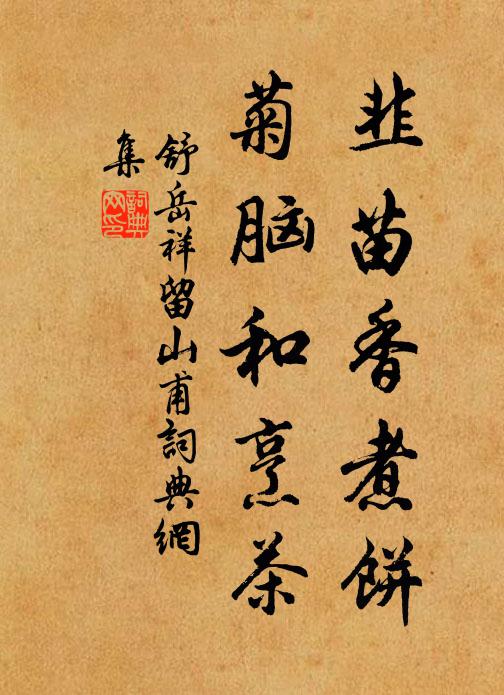 韭苗香煮餅
菊脑和烹茶
舒岳祥留山甫詞典網
集
詞典网印